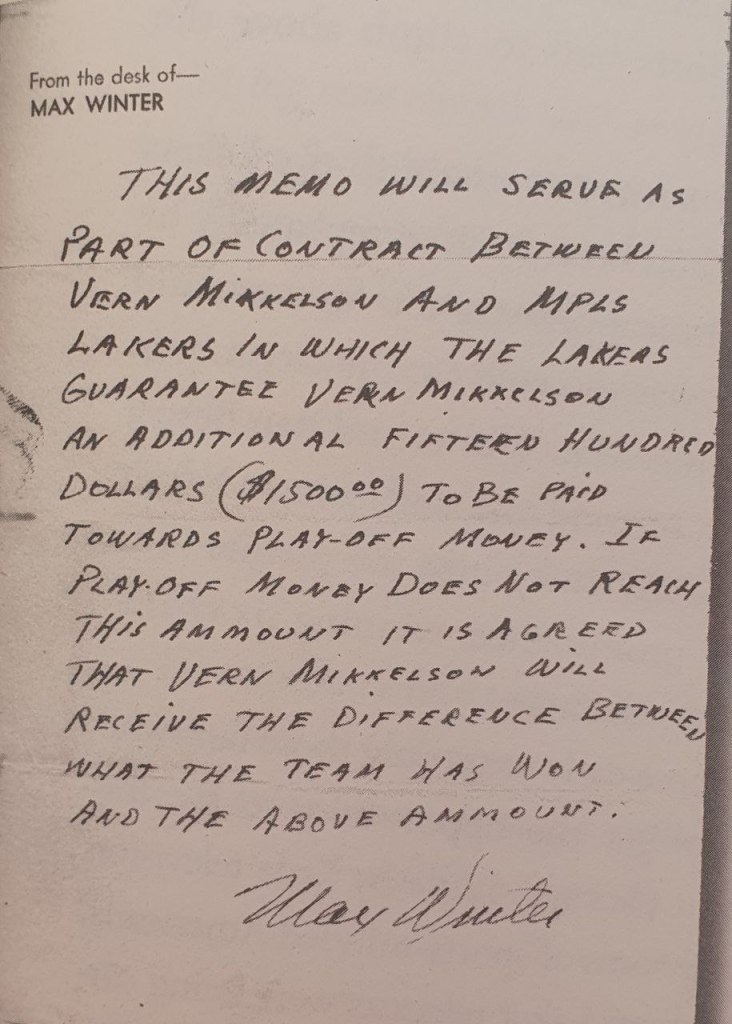 From the desk of—
MAX WINTER
THIS MEMO WILL SERVE AS
PART OF CONTRACT BETWEEN
VERN MIKKELSON AND MPLS
LAKERS IN WHICH THE LAKERS
GUARANTEE VERN MIKKELSON
AN ADDITIONAL FIFTEEN HUNDRED
DOLLARS ($1500⁰⁰) TO BE PAID
TOWARDS PLAY-OFF MONEY. IF
PLAY-OFF MONEY DOES NOT REACH
THIS AMMOUNT IT IS AGREED
THAT VERN MIKKELSON WILL
RECEIVE THE DIFFERENCE BETWEEN
WHAT THE TEAM HAS WON
AND THE ABOVE AMMOUNT.
Max Winter